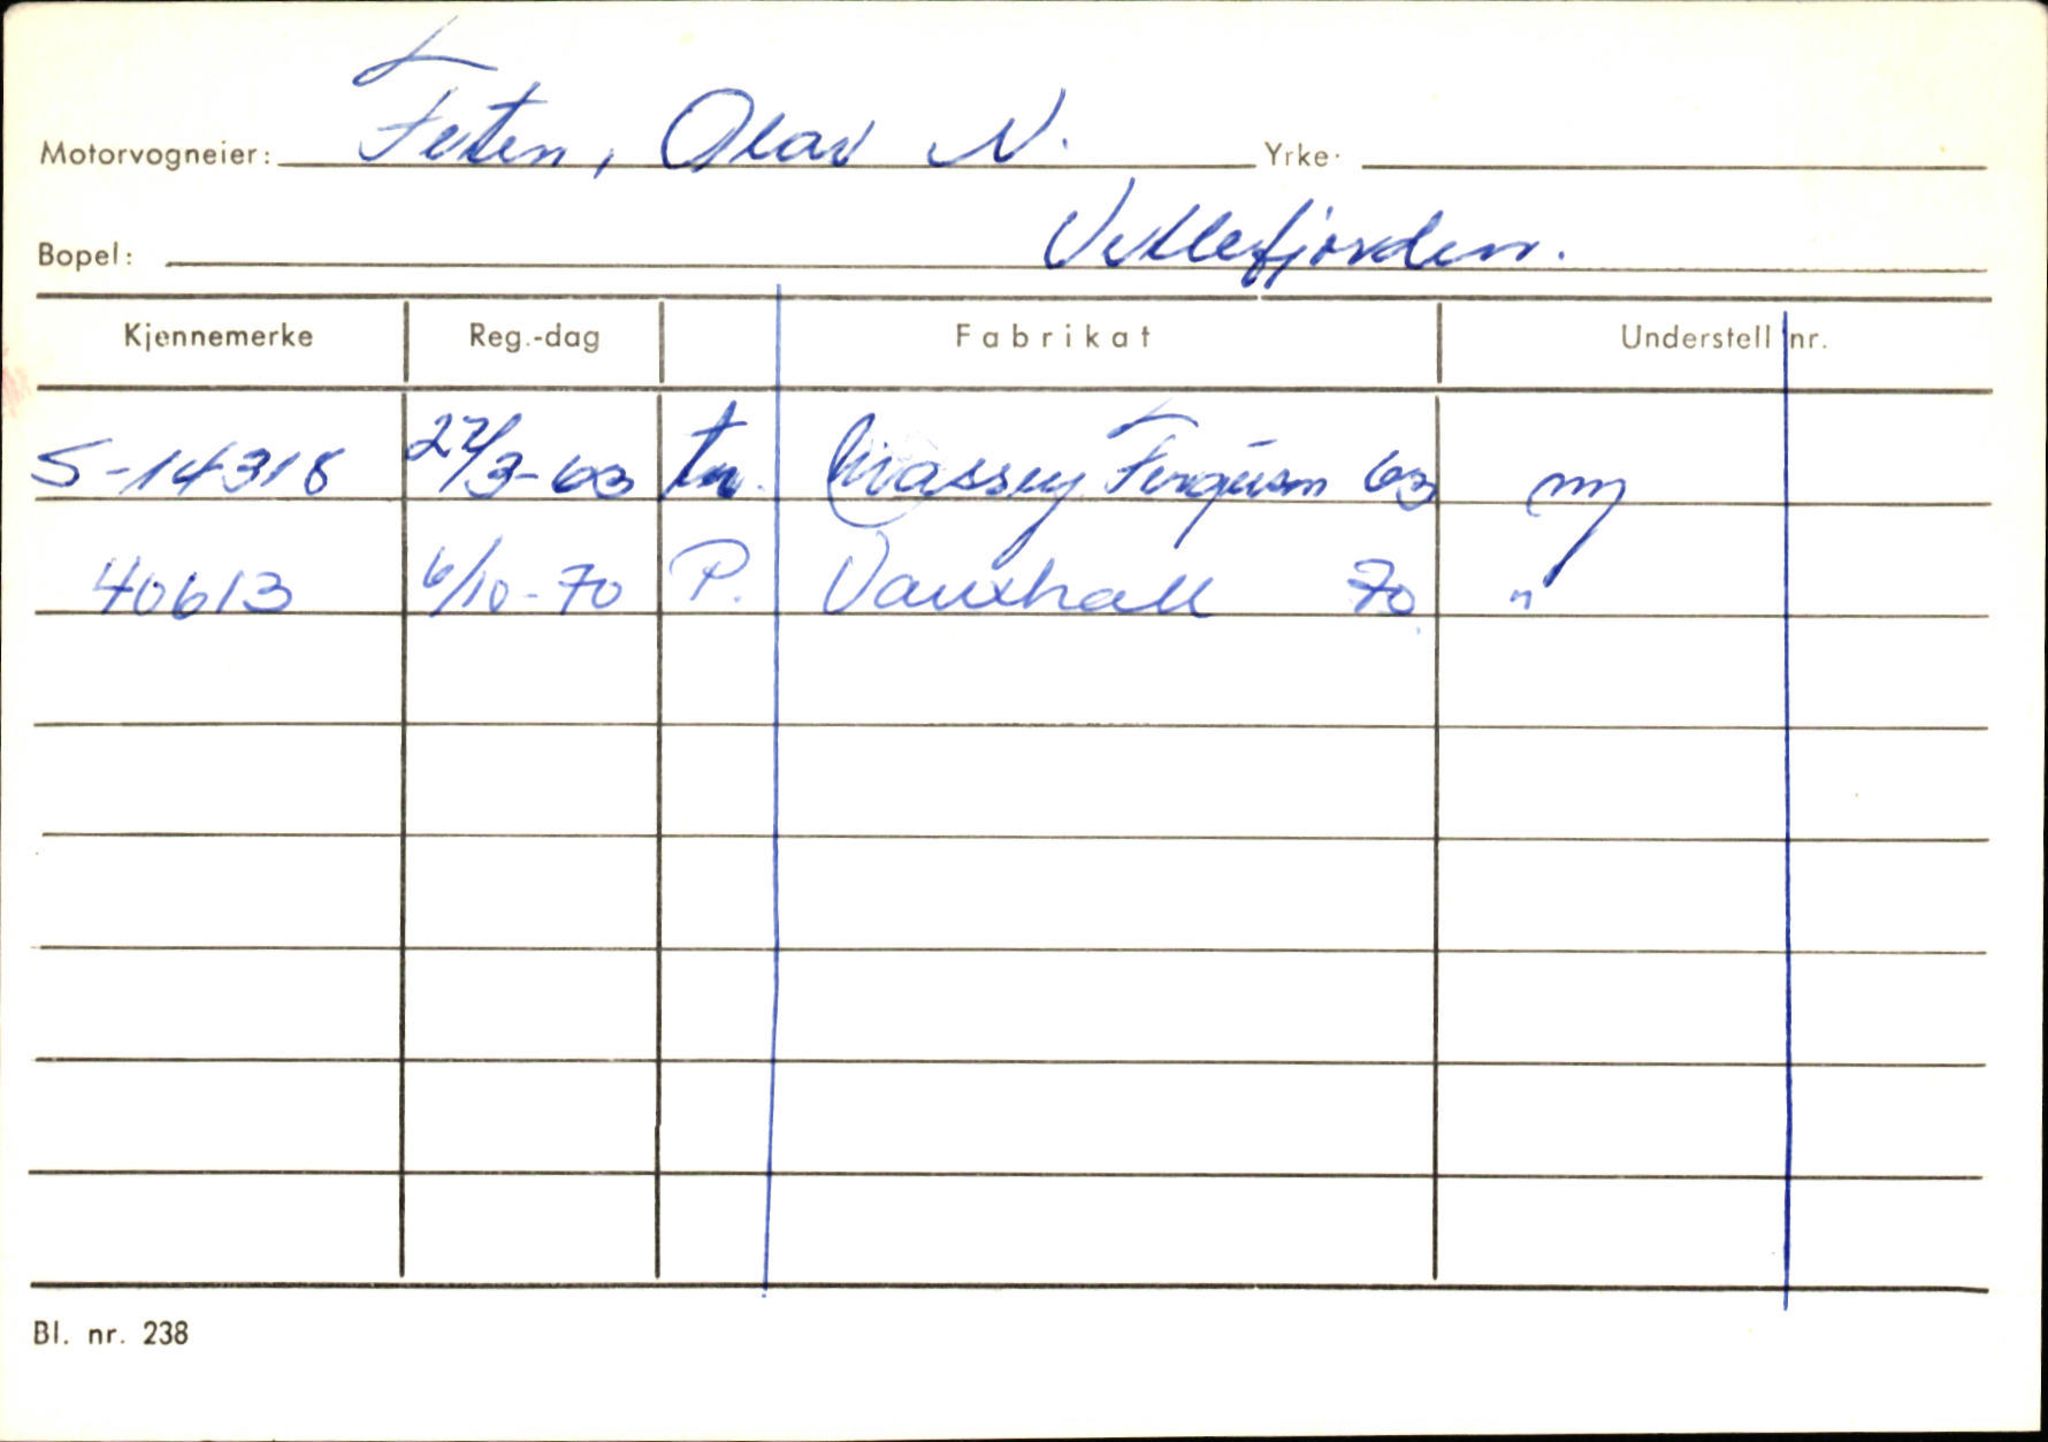 Motorvogneier: Feten, Olav N. Yrke
Bopel: Vetlefjorden.
Kjennemerke Reg.-dag Fabrikat Understell nr.
S-14318 22/3-63 tr. Massey Ferguson 63 ny
40613 6/10-70 P. Vauxhall 70 "
Bl. nr. 238